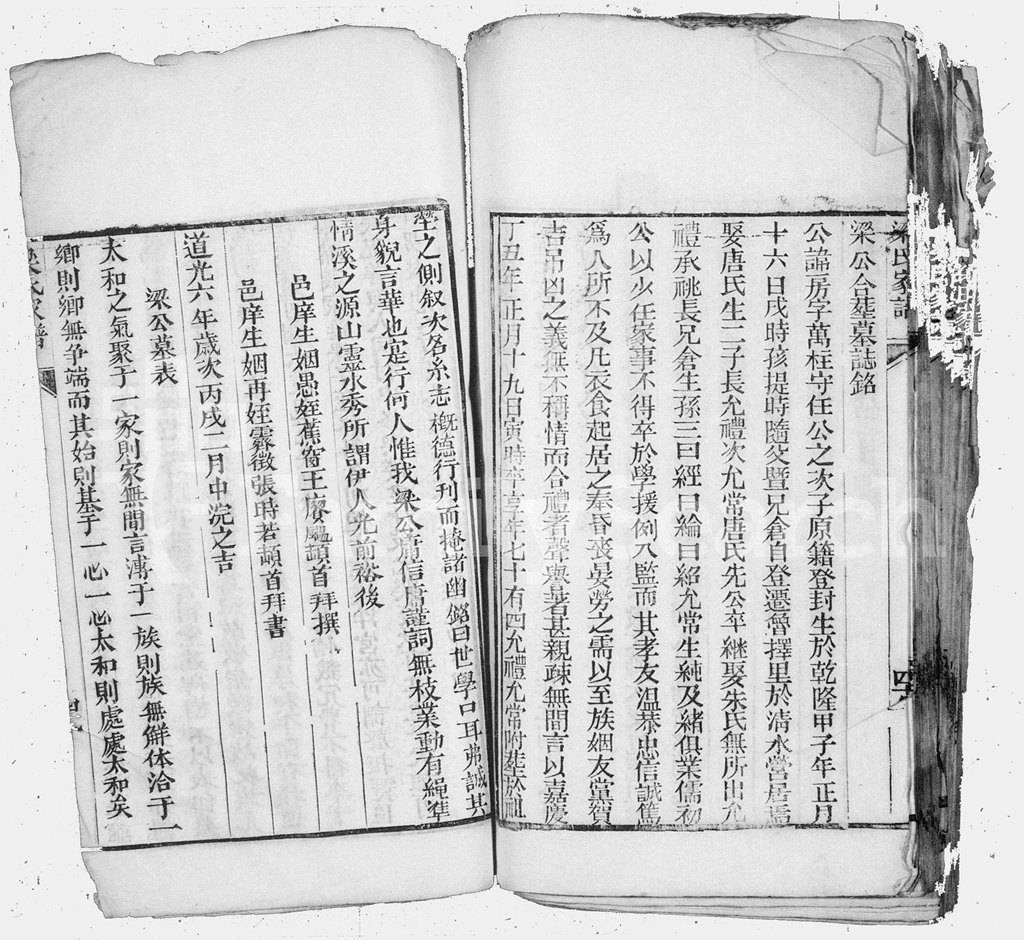 梁氏家譜
梁公合塟墓誌銘
公諱居字萬枉守任公之次子原籍登封生於乾隆甲子年正月
十六日戌時孩提時隨父暨兄倉自登遷魯擇里於清水營居焉
娶唐氏生二子長允禮次允常唐氏先公卒継娶朱氏無所出允
禮承祧長兄倉生孫三曰經曰綸曰紹允常生純及緒俱業儒初
公以少任家事不得卒於學援例入監而其孝友温恭忠信誠篤
爲人所不及凡衣食起居之奉昏喪晏勞之需以至族姻友黨賀
吉吊凶之義無不稱情而合禮者聲與著甚親疎無間言以嘉慶
丁丑年正月十九日寅時卒享年七十有四允禮允常附塟於祖
四六
塋之側叙次名系志概德行刊而掩諸幽銘曰世學口耳弗誠其
身貌言華也寔行何人惟我梁公庸信庸謹詞無枝葉動有繩準
情溪之源山靈水秀所謂伊人光前裕後
邑庠生姻愚姪蕉窗王賡颺頓首拜撰
邑庠生姻再姪霖徵張時若頓首拜書
道光六年歲次丙戌二月中浣之吉
梁公墓表
太和之氣聚于一家則家無間言溥于一族則族無觧体洽于一
鄉則鄉無争端而其始則基于一心一心太和則處處太和矣
氏家譜